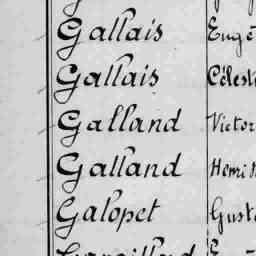 Gallais Eugè
Gallais Célest
Galland Victor
Galland Henri
Galopet Gust